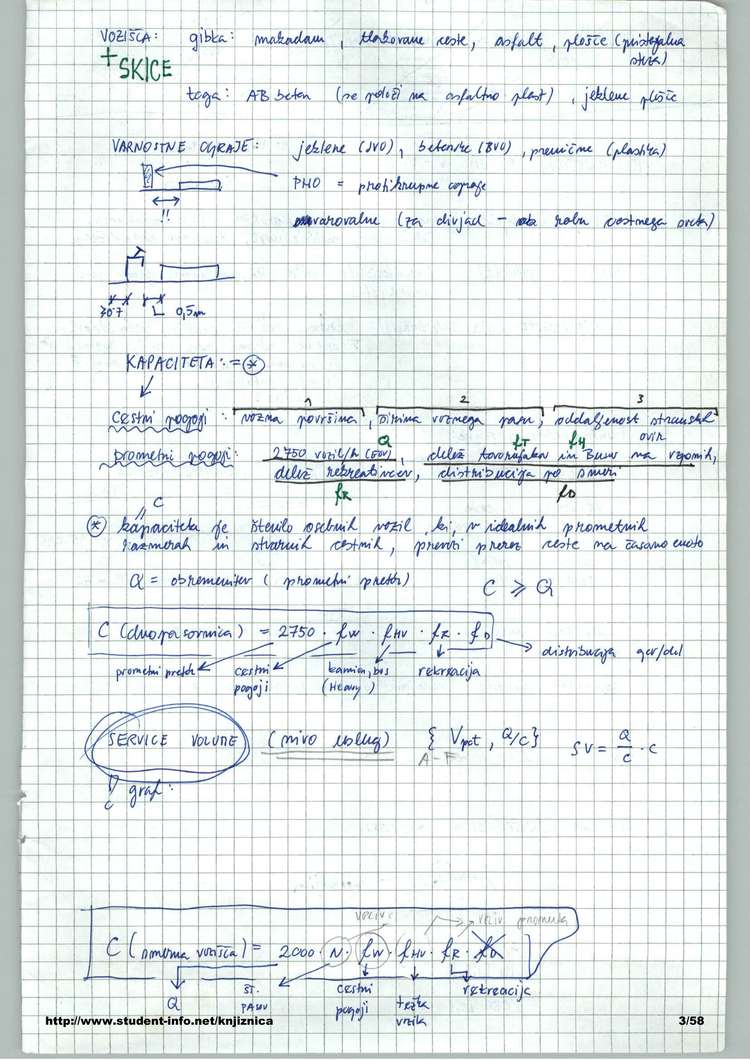 VOZIŠČA: gibka: makadam, tlakovane ceste, asfalt, plošče (
+ SKICE
toga: AB beton (se položi na asfaltno plast), jeklene plošče
VARNOSTNE OGRAJE: jeklene (JVO), betonske (BVO), premične (plastika)
PHO = protihrupne ograje
!!
varovalne (za divjad - rob cestnega sveta)
0,5m
KAPACITETA: = *
1 2 3
cestni pogoji: vozna površina, širina voznega pasu, oddaljenost stranskih ovir
Q fT fH
prometni pogoji: 2750 vozil/h (EOV), delež tovornjakov in busov na vzponih,
delež rekreativcev, distribucija po smeri
fR fD
C
* kapaciteta je število osebnih vozil, ki, v idealnih prometnih
razmerah in stvarnih cestnih, prevozi prerez ceste na časovno enoto
Q = obremenitev (prometni pretok) C ⩾ Q
C (dvopasovnica) = 2750 · fW · fHV · fR · fD
distribucija gor/dol
prometni pretok cestni pogoji kamion, bus (Heavy) rekreacija
SERVICE VOLUME (nivo uslug) { Vpot, Q/C } SV = Q/C · C
A-F
graf:
C ( vozišča) = 2000 · N · fW · fHV · fR · fD
Q ŠT. PASOV cestni pogoji težka vozila rekreacija
http://www.student-info.net/knjiznica 3/58